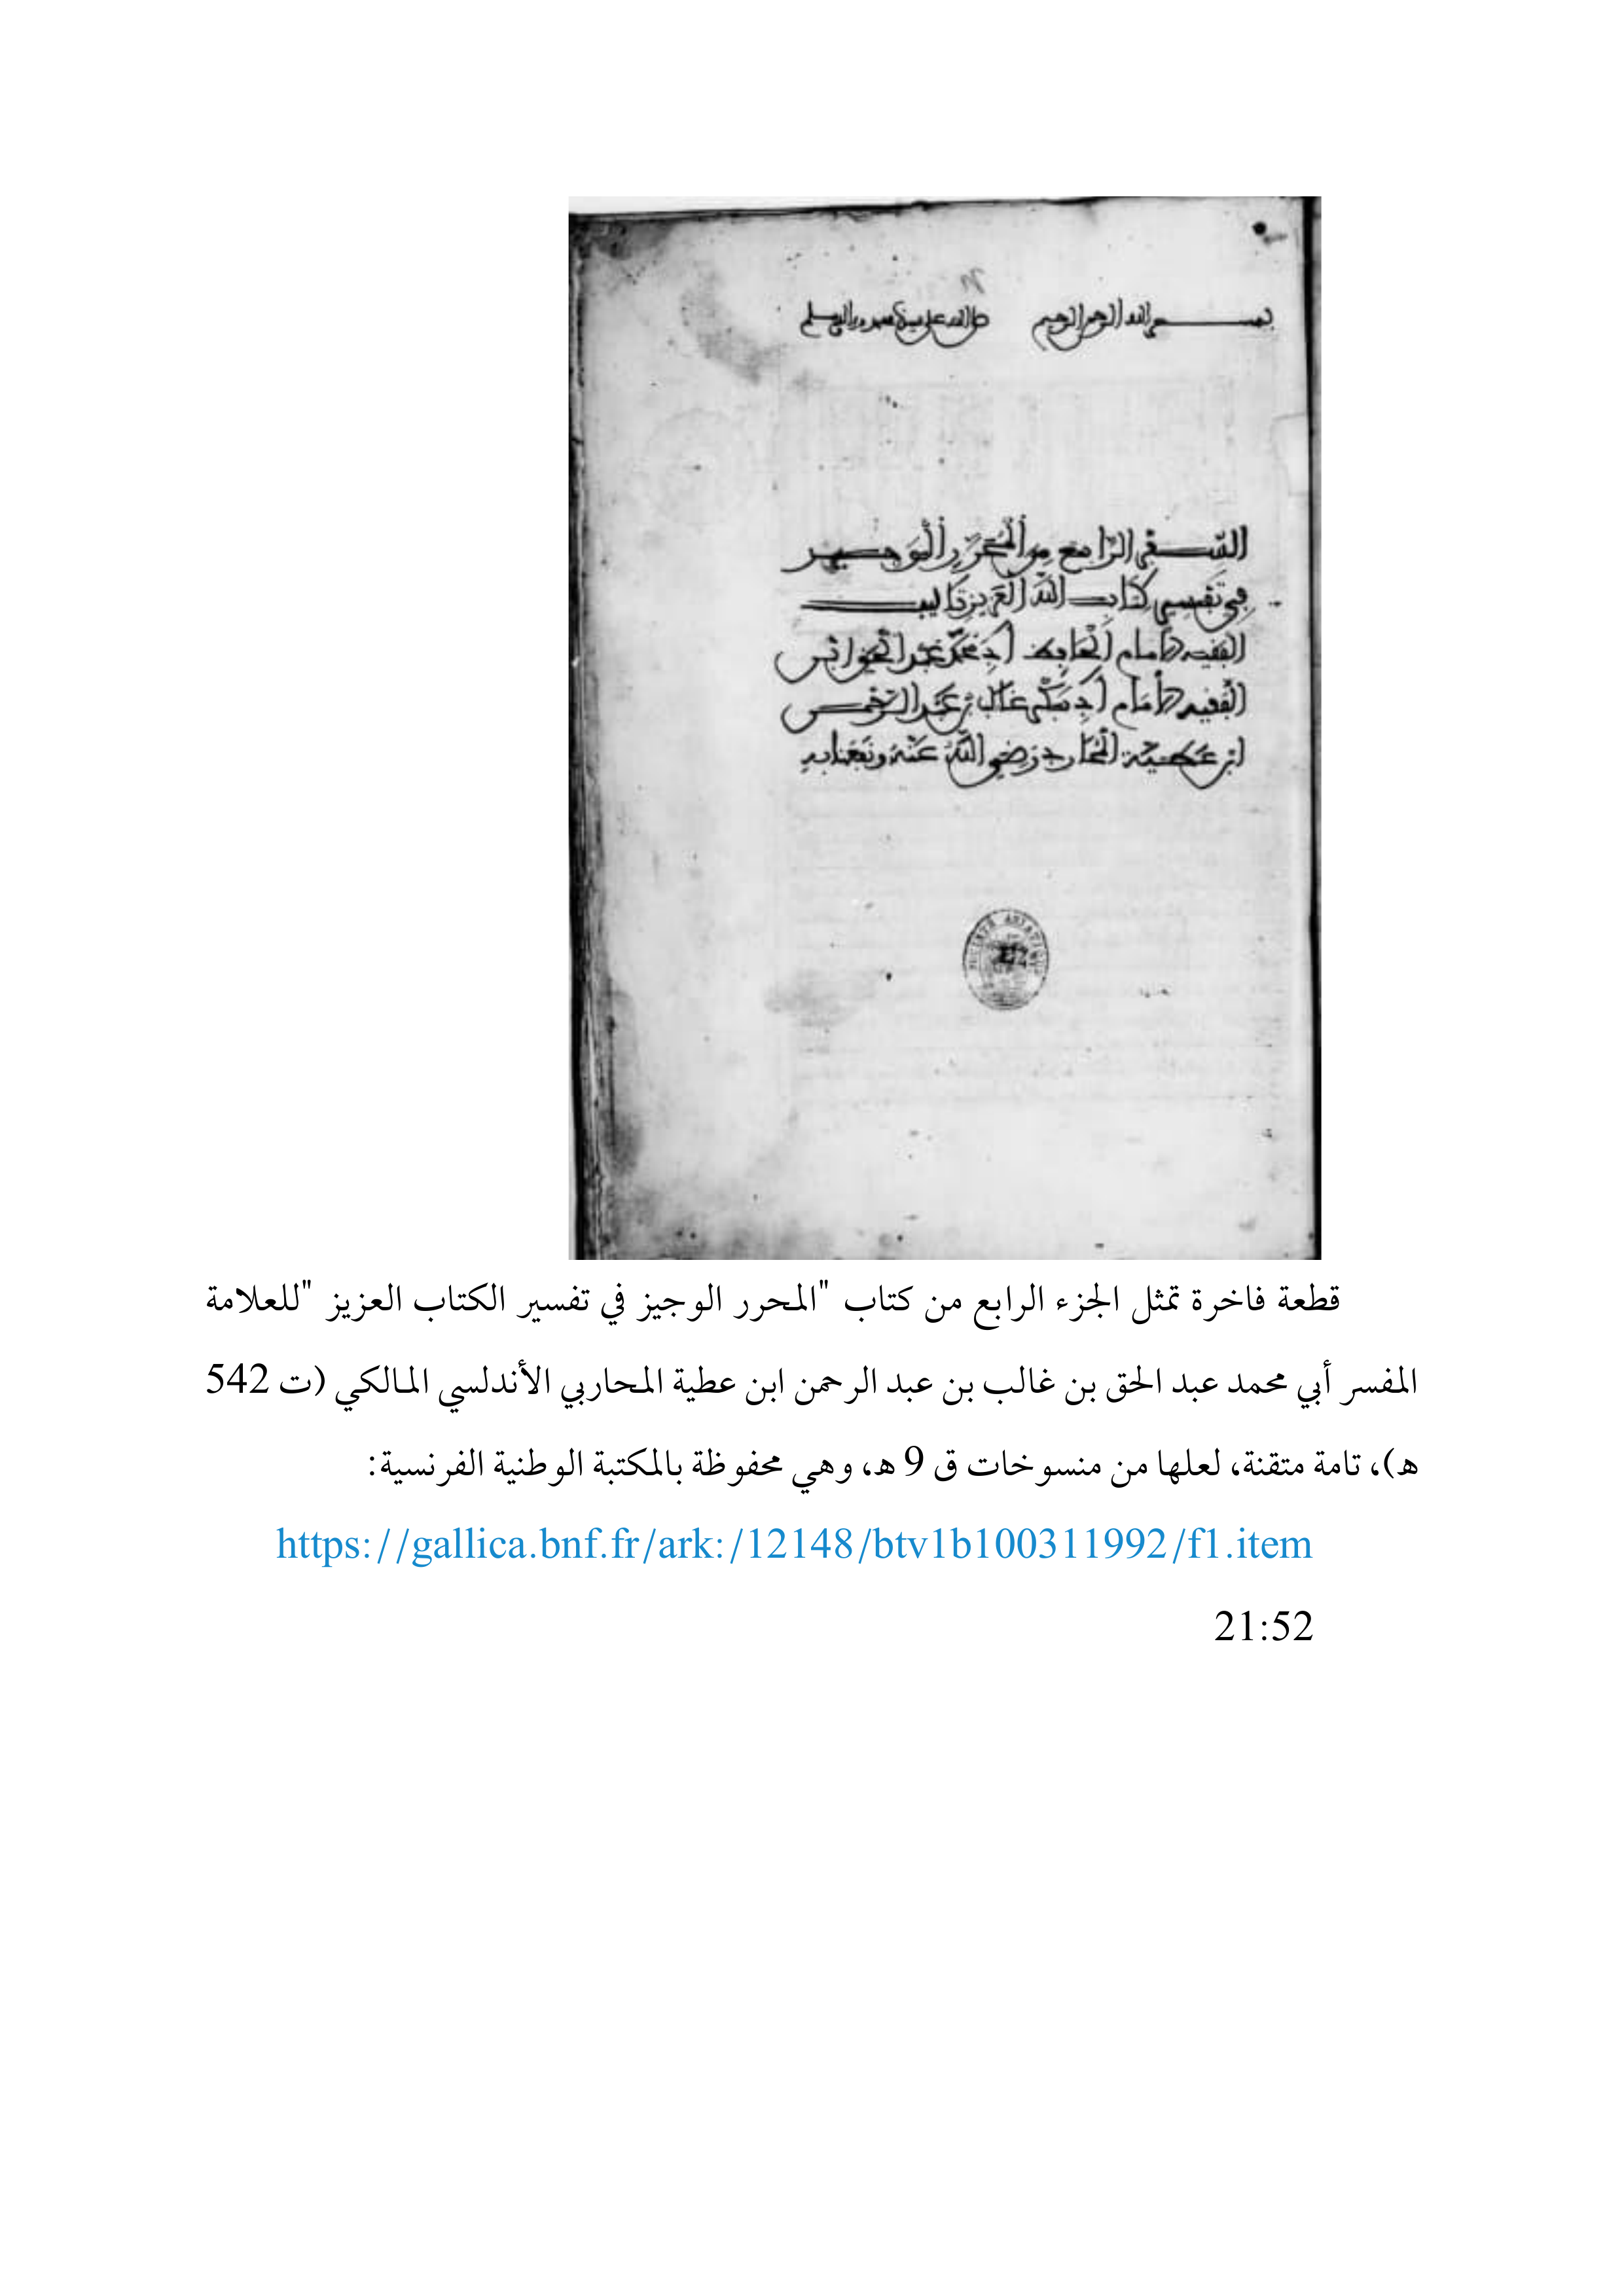 بسم الله الرحمن الرحيم صلى الله على سيدنا محمد وءاله وسلم
السفر الرابع من المحرر الوجيز
في تفسير كتاب الله العزيز تاليف
الفقيه الامام الحافظ أبي محمد عبد الحق ابن
الفقيه الأمام أبي بكر غالب بن عبد الرحمن
ابن عطية المحاربي رضي الله عنه ونفعنا به
قطعة فاخرة تمثل الجزء الرابع من كتاب "المحرر الوجيز في تفسير الكتاب العزيز "للعلامة
المفسر أبي محمد عبد الحق بن غالب بن عبد الرحمن ابن عطية المحاربي الأندلسي المالكي (ت 542
هـ)، تامة متقنة، لعلها من منسوخات ق 9 هـ، وهي محفوظة بالمكتبة الوطنية الفرنسية:
https://gallica.bnf.fr/ark:/12148/btv1b100311992/f1.item
21:52